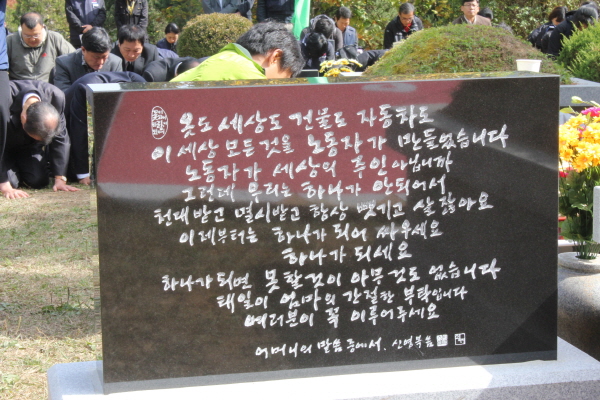 옷도 세상도 건물도 자동차도
이 세상 모든것을 노동자가 만들었습니다
노동자가 세상의 주인아닙니까
그런데 우리는 하나가 안되어서
천대받고 멸시받고 항상 뺏기고 살잖아요
이제부터는 하나가 되어 싸우세요
하나가 되세요
하나가 되면 못할것이 아무것도 없습니다
태일이 엄마의 간절한 부탁입니다
여러분이 꼭 이루어주세요
어머니의 말씀 중에서. 신영복 씀